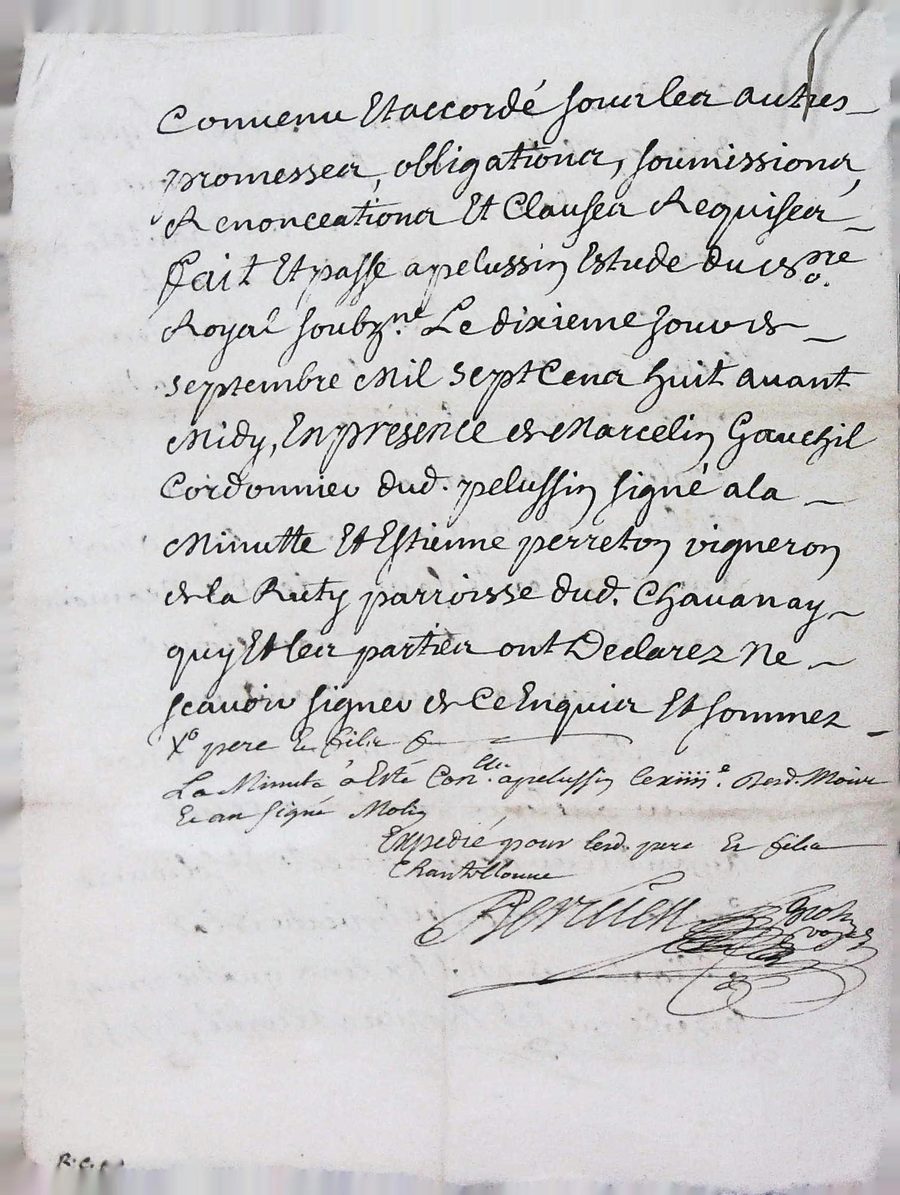 Convenu Et accordé soubs les autres
promesses, obligations, soumissions,
Renonceations Et Clauses Requises
fait Et passé a pelussin Estude du no.re
Royal soubz.né Le dixieme jour de
septembre Mil sept Cens huit avant
Midy, En presence de Marcelin Gauchil
Cordonnier dud. pelussin signé a la
Minutte Et Estienne perreton vigneron
de la Ruty parroisse dud. Chavanay
quy Et les parties ont Declarez Ne
scavoir signer de Ce Enquis Et sommez
pere Et fils
La Minute a Esté Con.lle a pelussin le xiiii.e Desd. Mois
Et an signé Molin
Expedié pour lesd. pere Et fils
Chantollouve
no.re
royal
R.C.